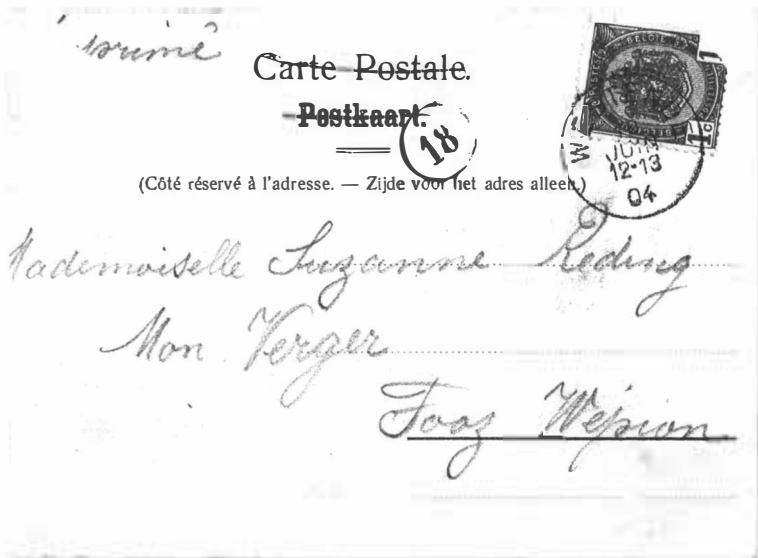 imprimé
Carte Postale.
Postkaart.
18
(Côté réservé à l'adresse. — Zijde voor het adres alleen.)
JUIN
12-13
04
1c
Mademoiselle Suzanne Reding
Mon Verger
Fooz Wépion